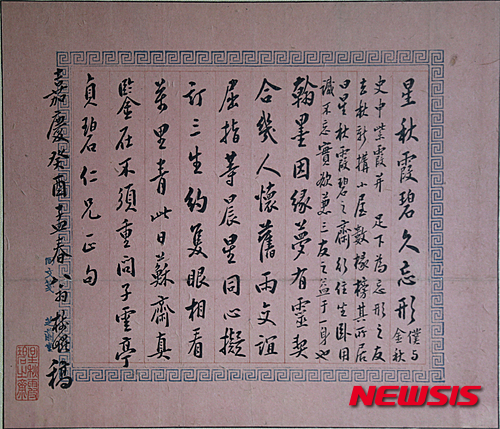 星秋霞碧久忘形 僕与金秋
史申紫霞并 足下為忘形之友
去秋新搆小屋數椽榜其所居
曰星秋霞碧之齋行住坐卧因
識不忘實欲兼三友之益于一身也
翰墨因緣夢有靈契
合幾人懷舊雨文誼
屈指等晨星同心擬
訂三生約隻眼相看
萬里青此日蘇齋真
鑒在不須重問子雲亭
貞碧仁兄正句
嘉慶癸酉孟春 稿
星秋霞碧之齋
NEWSIS